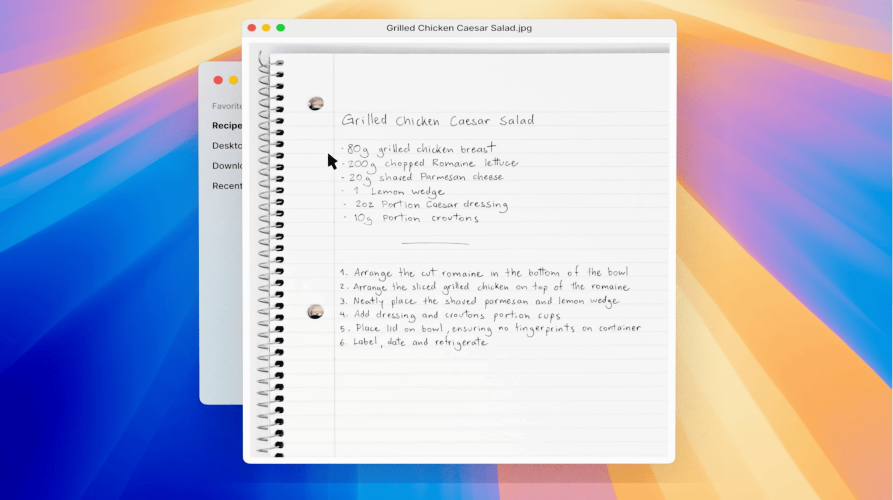 Grilled Chicken Caesar Salad.jpg
Favorite
Recipe
Deskto
Downlo
Recent
Grilled Chicken Caesar Salad
· 80g grilled chicken breast
· 200g chopped Romaine lettuce
- 20g shaved Parmesan cheese
· 1 Lemon wedge
· 2oz Portion Caesar dressing
· 10g Portion croutons
1. Arrange the cut romaine in the bottom of the bowl
2. Arrange the sliced grilled chicken on top of the romaine
3. Neatly place the shaved parmesan and lemon wedge
4. Add dressing and croutons portion cups
5. Place lid on bowl, ensuring no fingerprints on container
6. Label, date and refrigerate